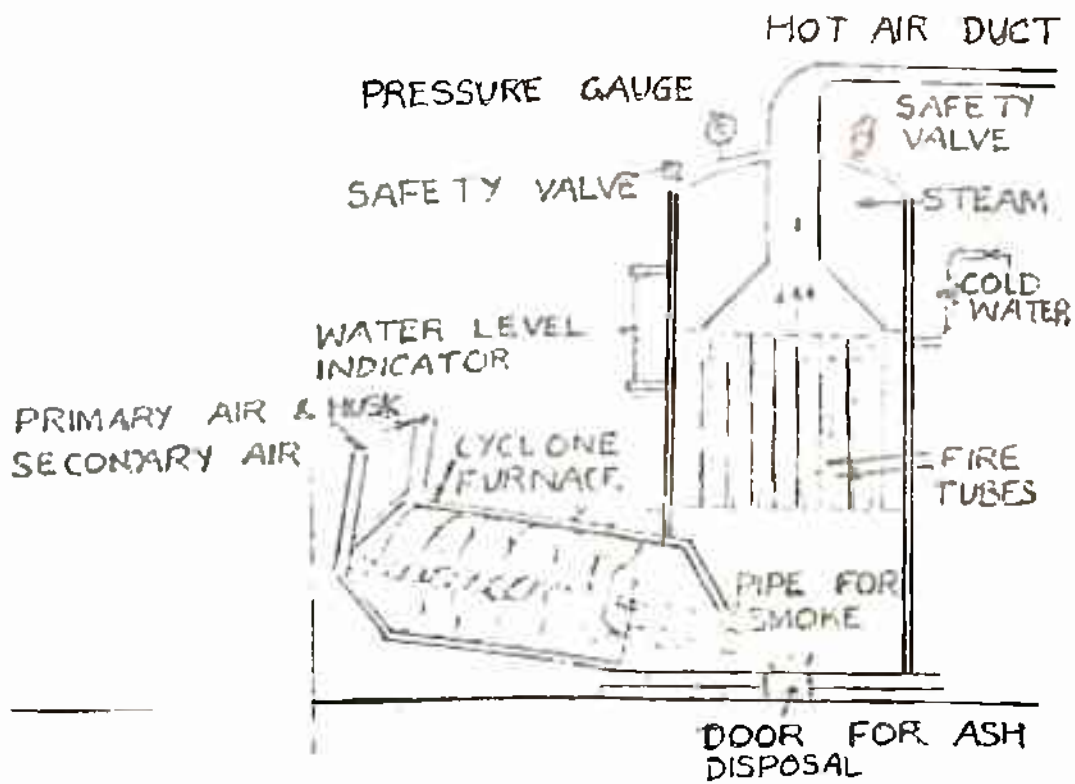 HOT AIR DUCT
PRESSURE GAUGE
SAFETY
VALVE
SAFETY VALVE
STEAM
COLD
WATER
WATER LEVEL
INDICATOR
PRIMARY AIR & HUSK
SECONDARY AIR
CYCLONE
FURNACE
FIRE
TUBES
PIPE FOR
SMOKE
DOOR FOR ASH
DISPOSAL